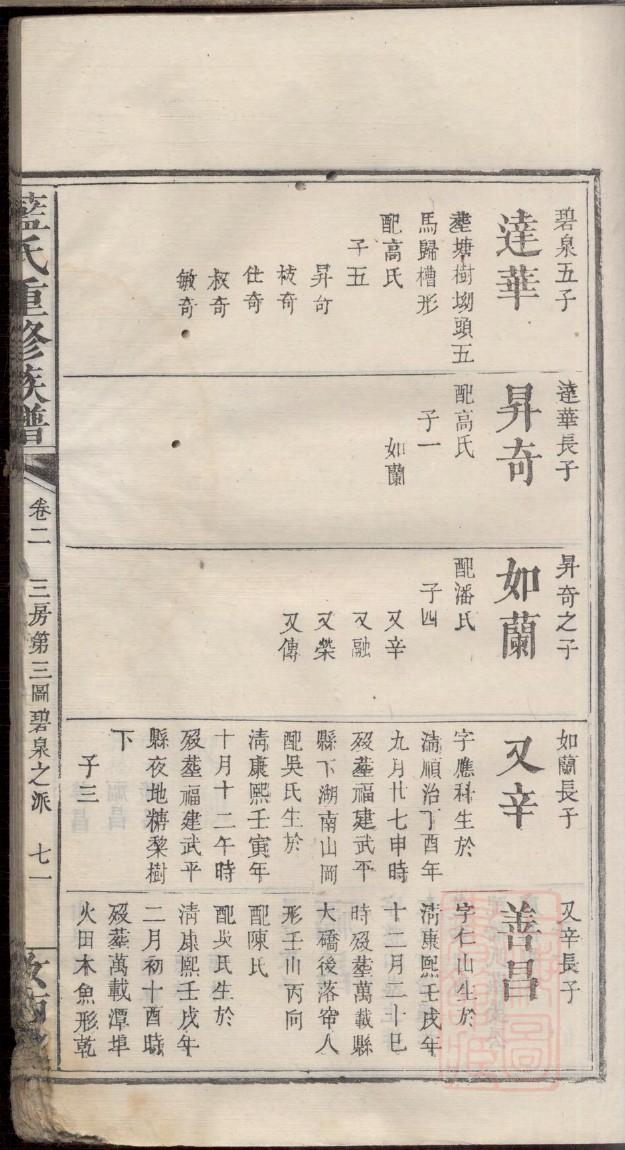 碧泉五子
達華
塟塘樹坳頭五
馬歸槽形
配高氏
子五
昇奇
被奇
仕奇
叔奇
敏奇
達華長子
昇奇
配高氏
子一
如蘭
昇奇之子
如蘭
配潘氏
子四
又辛
又融
又榮
又傳
如蘭長子
又辛
字應科生於
清順治丁酉年
九月廿七申時
殁塟福建武平
縣下湖南山岡
配吳氏生於
清康熙壬寅年
十月十二午時
殁塟福建武平
縣夜地糖棃樹
下
子三
又辛長子
善昌
字仁山生於
清康熙壬戌年
十二月二十巳
時殁塟萬載縣
大礄後落帘人
形壬山丙向
配陳氏
配吳氏生於
清康熙壬戌年
二月初十酉時
殁塟萬載潭埠
火田木魚形乾
藍氏重修族譜
卷二
三房第三圖碧泉之派
七一
汝南